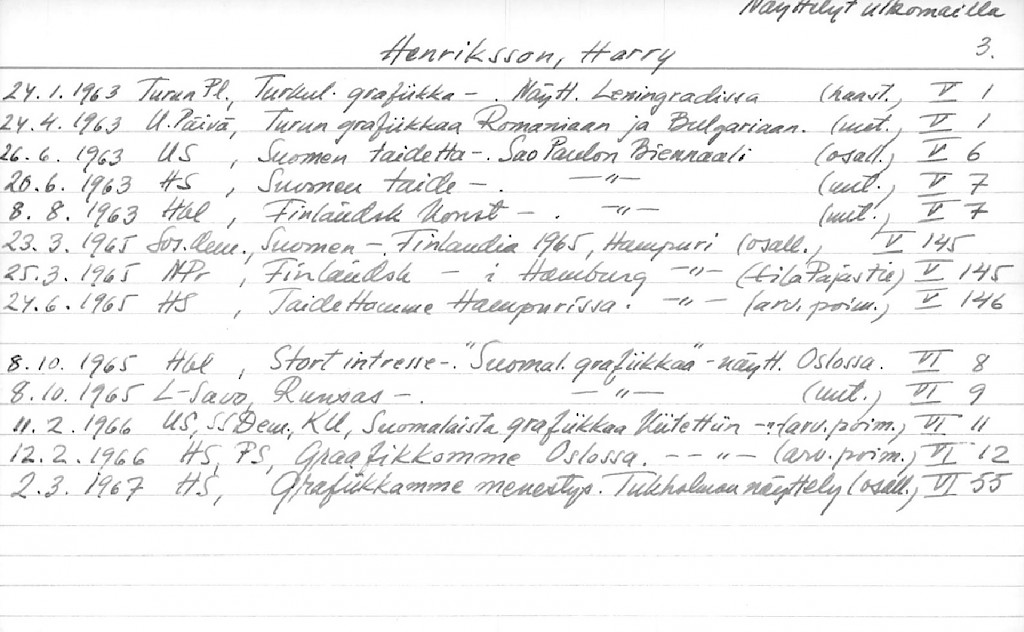 Näyttelyt ulkomailla
3.
Henriksson, Harry
24.1.1963 Turun Pl., Turkul. grafiikka -. Näytt. Leningradissa (haast., V 1
24.4.1963 U. Päivä, Turun grafiikkaa Romaniaan ja Bulgariaan. (uut., V 1
26.6.1963 US, Suomen taidetta -. Sao Paulon Biennaali (osall.) V 6
20.6.1963 HS, Suomen taide -. -"- (uut., V 7
8.8.1963 Hbl, Finländsk konst -. -"- (uut., V 7
23.3.1965 Sos.dem., Suomen - Finlandia 1965, Hampuri (osall., V 145
25.3.1965 NPr, Finländsk - i Hamburg -"- (Eila Pajastie) V 145
24.6.1965 HS, Taidettamme Hampurissa. -"- (arv.poim., V 146
8.10.1965 Hbl, Stort intresse -. "Suomal. grafiikkaa" - näytt. Oslossa. VI 8
8.10.1965 L-Savo, Runsas -. -"- (uut., VI 9
11.2.1966 US, SSDem., KU, Suomalaista grafiikkaa kiitettiin -"- (arv.poim., VI 11
12.2.1966 HS, PS, Graafikkomme Oslossa. - -"- (arv.poim., VI 12
2.3.1967 HS, Grafiikkamme menestys. Tukholman näyttely (osall., VI 55